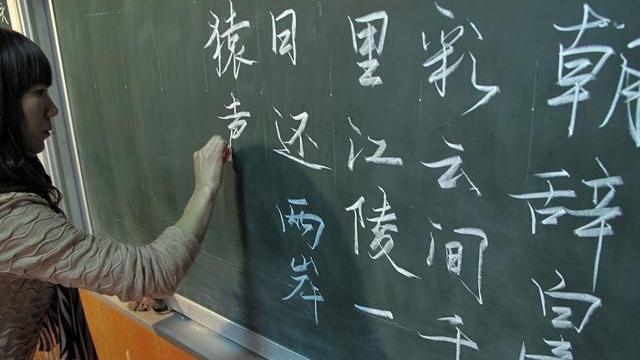 朝辞白
彩云间千
里江陵一
日还两岸
猿声